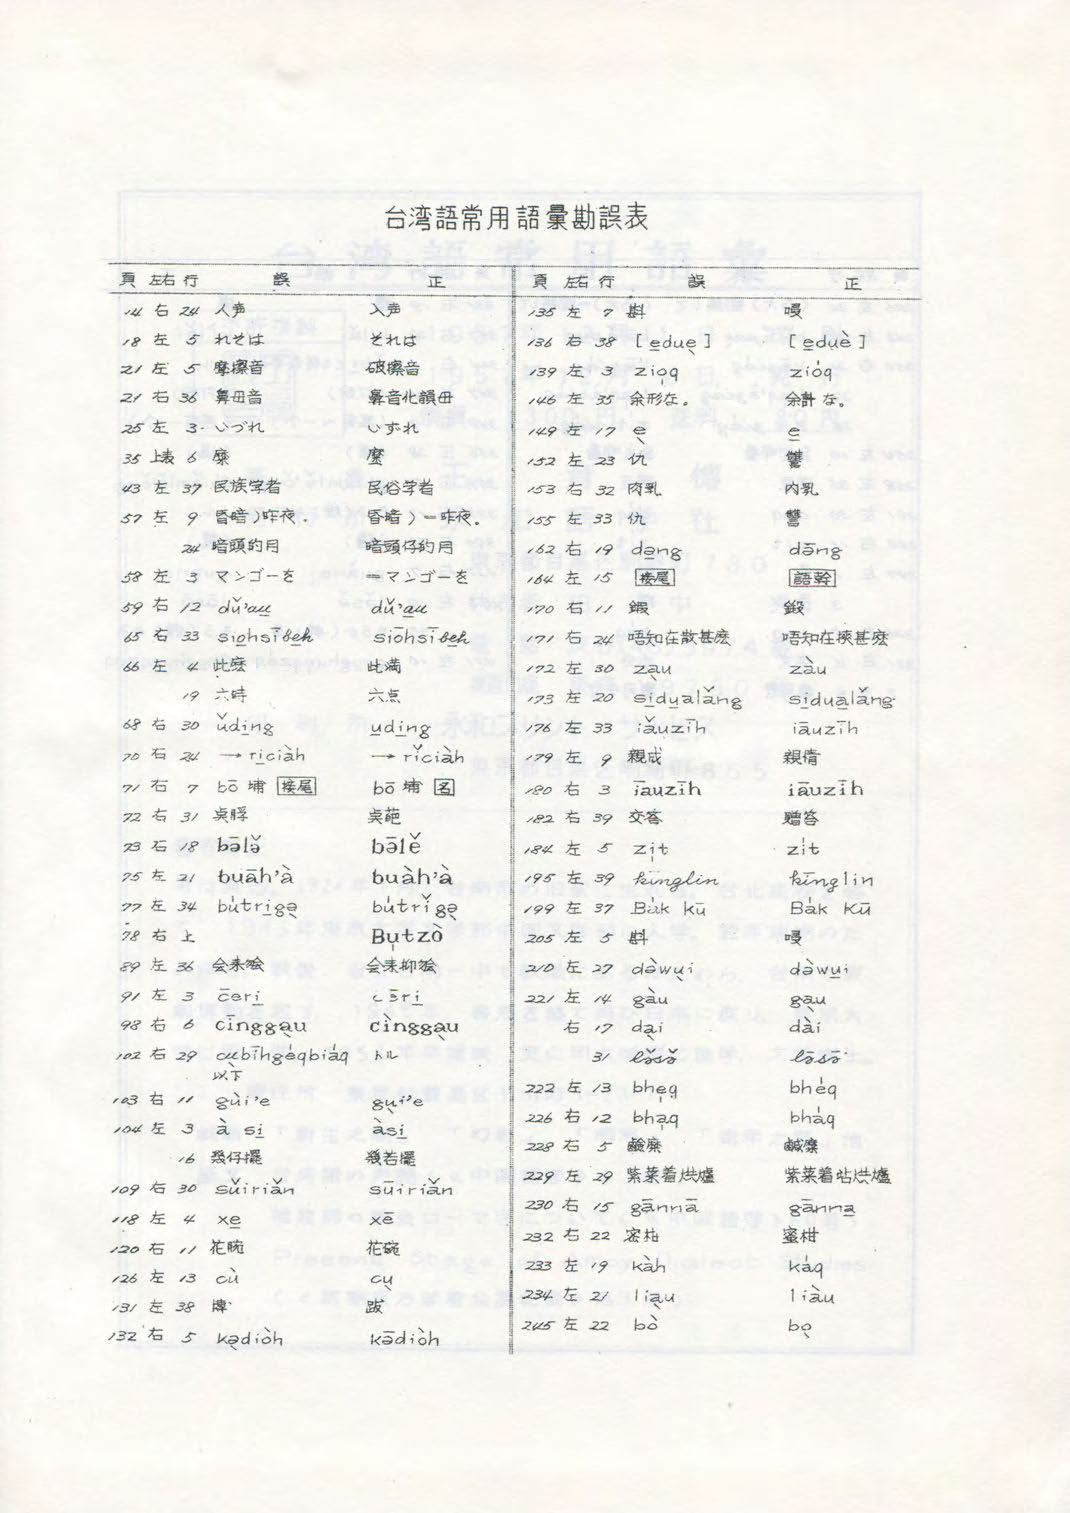 台湾語常用語彙勘誤表
頁 左右 行 誤 正
14 右 24 人声 入声
18 左 5 れそは それは
21 左 5 摩擦音 破擦音
21 右 36 鼻母音 鼻音化韻母
25 左 3 いづれ いずれ
35 上表 6 糜 麼
43 左 37 民族学者 民俗学者
57 左 9 昏暗)昨夜. 昏暗)一昨夜.
24 暗頭的月 暗頭仔的月
58 左 3 マンゴーを ーマンゴーを
59 右 12
65 右 33
66 左 4 此麽 此満
19 六時 六点
68 右 30
70 右 24 → ri̱ciàh → rǐciàh
71 右 7 bō 埔 接尾 bō 埔 名
72 右 31
73 右 18 bə̄lə̌ bə̄lě
75 左 21 buāh'à buàh'à
77 左 34
78 右 上 Bu̩tzò
89 左 36
91 左 3
98 右 6 cīngga̖u cìngga̖u
102 右 29 トル
以下
103 右 11 gùi'e
104 左 3 à si̱ àsi̱
16 幾仔擺 幾若擺
109 右 30 sǔiriǎn sūiriǎn
118 左 4 xe̱ xē
120 右 11 花腕 花碗
126 左 13 cù cu̖
131 左 38
132 右 5 kə̖diòh kə̄diòh
頁 左右 行 誤 正
135 左 7
136 右 38 [e̱due̖] [e̱duè]
139 左 3 zio̩q zió̍q
146 左 35 余形な。 余計な。
149 左 17 e̖ e̱
152 左 23 仇 讐
153 右 32 肉乳 内乳
155 左 33 仇 讐
162 右 19 də̱ng də̄ng
164 左 15 接尾 語幹
170 右 11 鍜 鍛
171 右 24
172 左 30 za̖u zàu
173 左 20 si̱dualǎng si̱dua̱lǎng
176 左 33 iǎuzīh iāuzīh
179 左 9 親戚 親情
180 右 3 īauzīh iāuzīh
182 右 39 交答 贈答
184 左 5 zi̩t zi̍t
195 左 39 kīnglin kīnglin
199 左 37 Ba̍k kū Ba̍k Kū
205 左 5
210 左 27 də̀wu̖i də̀wu̱i
221 左 14 gàu ga̱u
右 17 da̖i dài
31 lə̌sə̌ lə̄sə̄
222 左 13 bhe̩q bhe̍q
226 右 12 bha̩q bha̍q
228 右 5
229 左 29
230 右 15 gānnā gānna̱
232 右 22 密柑 蜜柑
233 左 19 kàh ka̍q
234 左 21 lia̖u liàu
245 左 22 bò bo̖